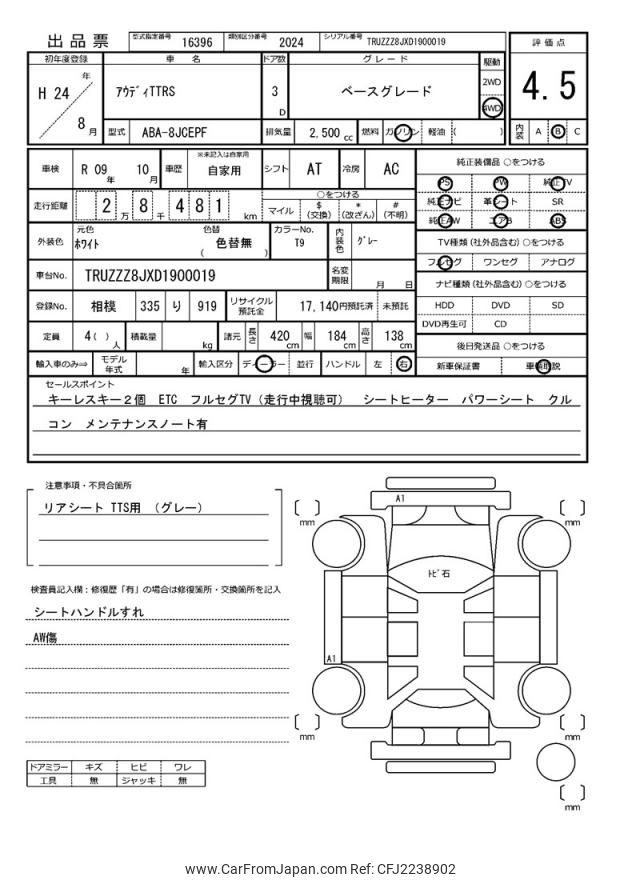 出品票 型式指定番号 16396 類別区分番号 2024 シリアル番号 TRUZZZ8JXD1900019
評価点
4.5
内装 A B C
初年度登録 車名 ドア数 グレード 駆動
H 24 年 8 月 アウディTTRS 3 D ベースグレード 2WD 4WD
型式 ABA-8JCEPF 排気量 2,500 cc 燃料 ガソリン 軽油 ( )
車検 R 09 年 10 月 車歴 ※未記入は自家用 自家用 シフト AT 冷房 AC
走行距離 2 万 8 千 4 8 1 km ○をつける マイル $ (交換) * (改ざん) # (不明)
外装色 元色 ホワイト 色替 ( 色替無 ) カラーNo. T9 内装色 グレー
車台No. TRUZZZ8JXD1900019 名変期限 月 日
登録No. 相模 335 り 919 リサイクル預託金 17,140円預託済 未預託
定員 4( ) 人 積載量 kg 諸元 長さ 420 cm 幅 184 cm 高さ 138 cm
輸入車のみ⇒ モデル年式 年 輸入区分 ディーラー 並行 ハンドル 左 右
純正装備品 ○をつける
PS PW 純正TV
純正ナビ 革シート SR
純正AW エアB ABS
TV種類 (社外品含む) ○をつける
フルセグ ワンセグ アナログ
ナビ種類 (社外品含む) ○をつける
HDD DVD SD
DVD再生可 CD
後日発送品 ○をつける
新車保証書 車輌取説
セールスポイント
キーレスキー2個 ETC フルセグTV(走行中視聴可) シートヒーター パワーシート クル
コン メンテナンスノート有
注意事項・不具合箇所
リアシート TTS用 (グレー)
検査員記入欄:修復歴「有」の場合は修復箇所・交換箇所を記入
シートハンドルすれ
AW傷
ドアミラー キズ ヒビ ワレ
工具 無 ジャッキ 無
A1
mm
mm
トビ石
A1
mm
mm
mm
www.CarFromJapan.com Ref: CFJ2238902